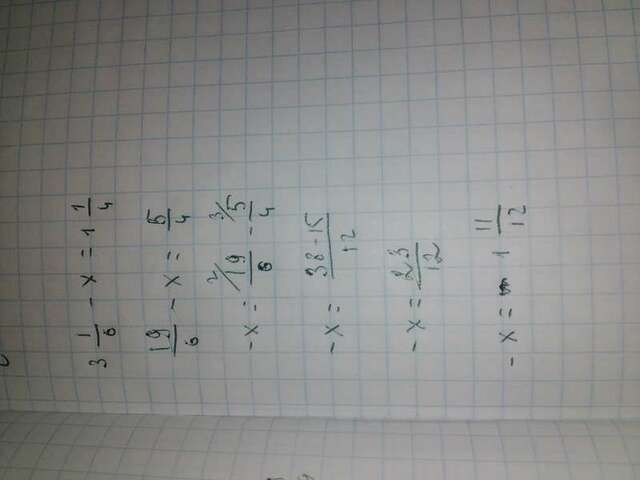 3 1/6 - x = 1 1/4
19/6 - x = 5/4
-x = 2/19/6 - 3/5/4
-x = 38-15/12
-x = 23/12
-x = 1 11/12